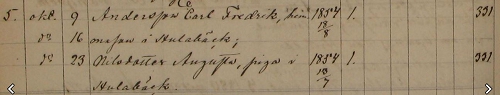 5. okt. 9 Andersson Carl Fredrik, hem 1854 18/8 1. 331
do 16 masson i Hulabäck;
do 23 Nilsdotter Augusta, piga i 1854 13/7 1. 331
Hulabäck.